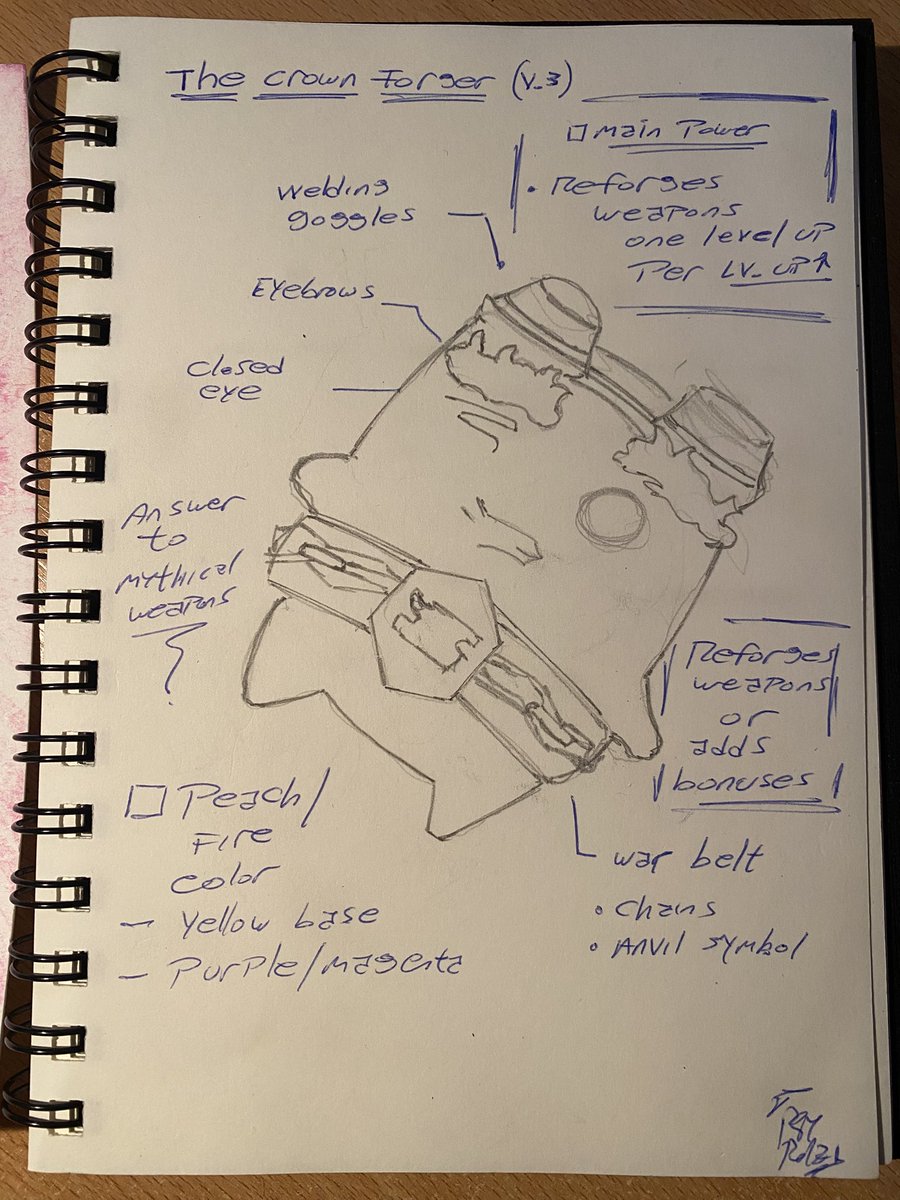 The Crown Forger (V_3)
□ Main Power
• Reforges
weapons
one level up
Per LV_UP↑
Welding
goggles
Eyebrows
Closed
eye
Answer
to
Mythical
weapons
?
Reforges
weapons
or
adds
bonuses
□ Peach/
Fire
color
- Yellow base
- Purple/magenta
war belt
• Chains
• Anvil symbol